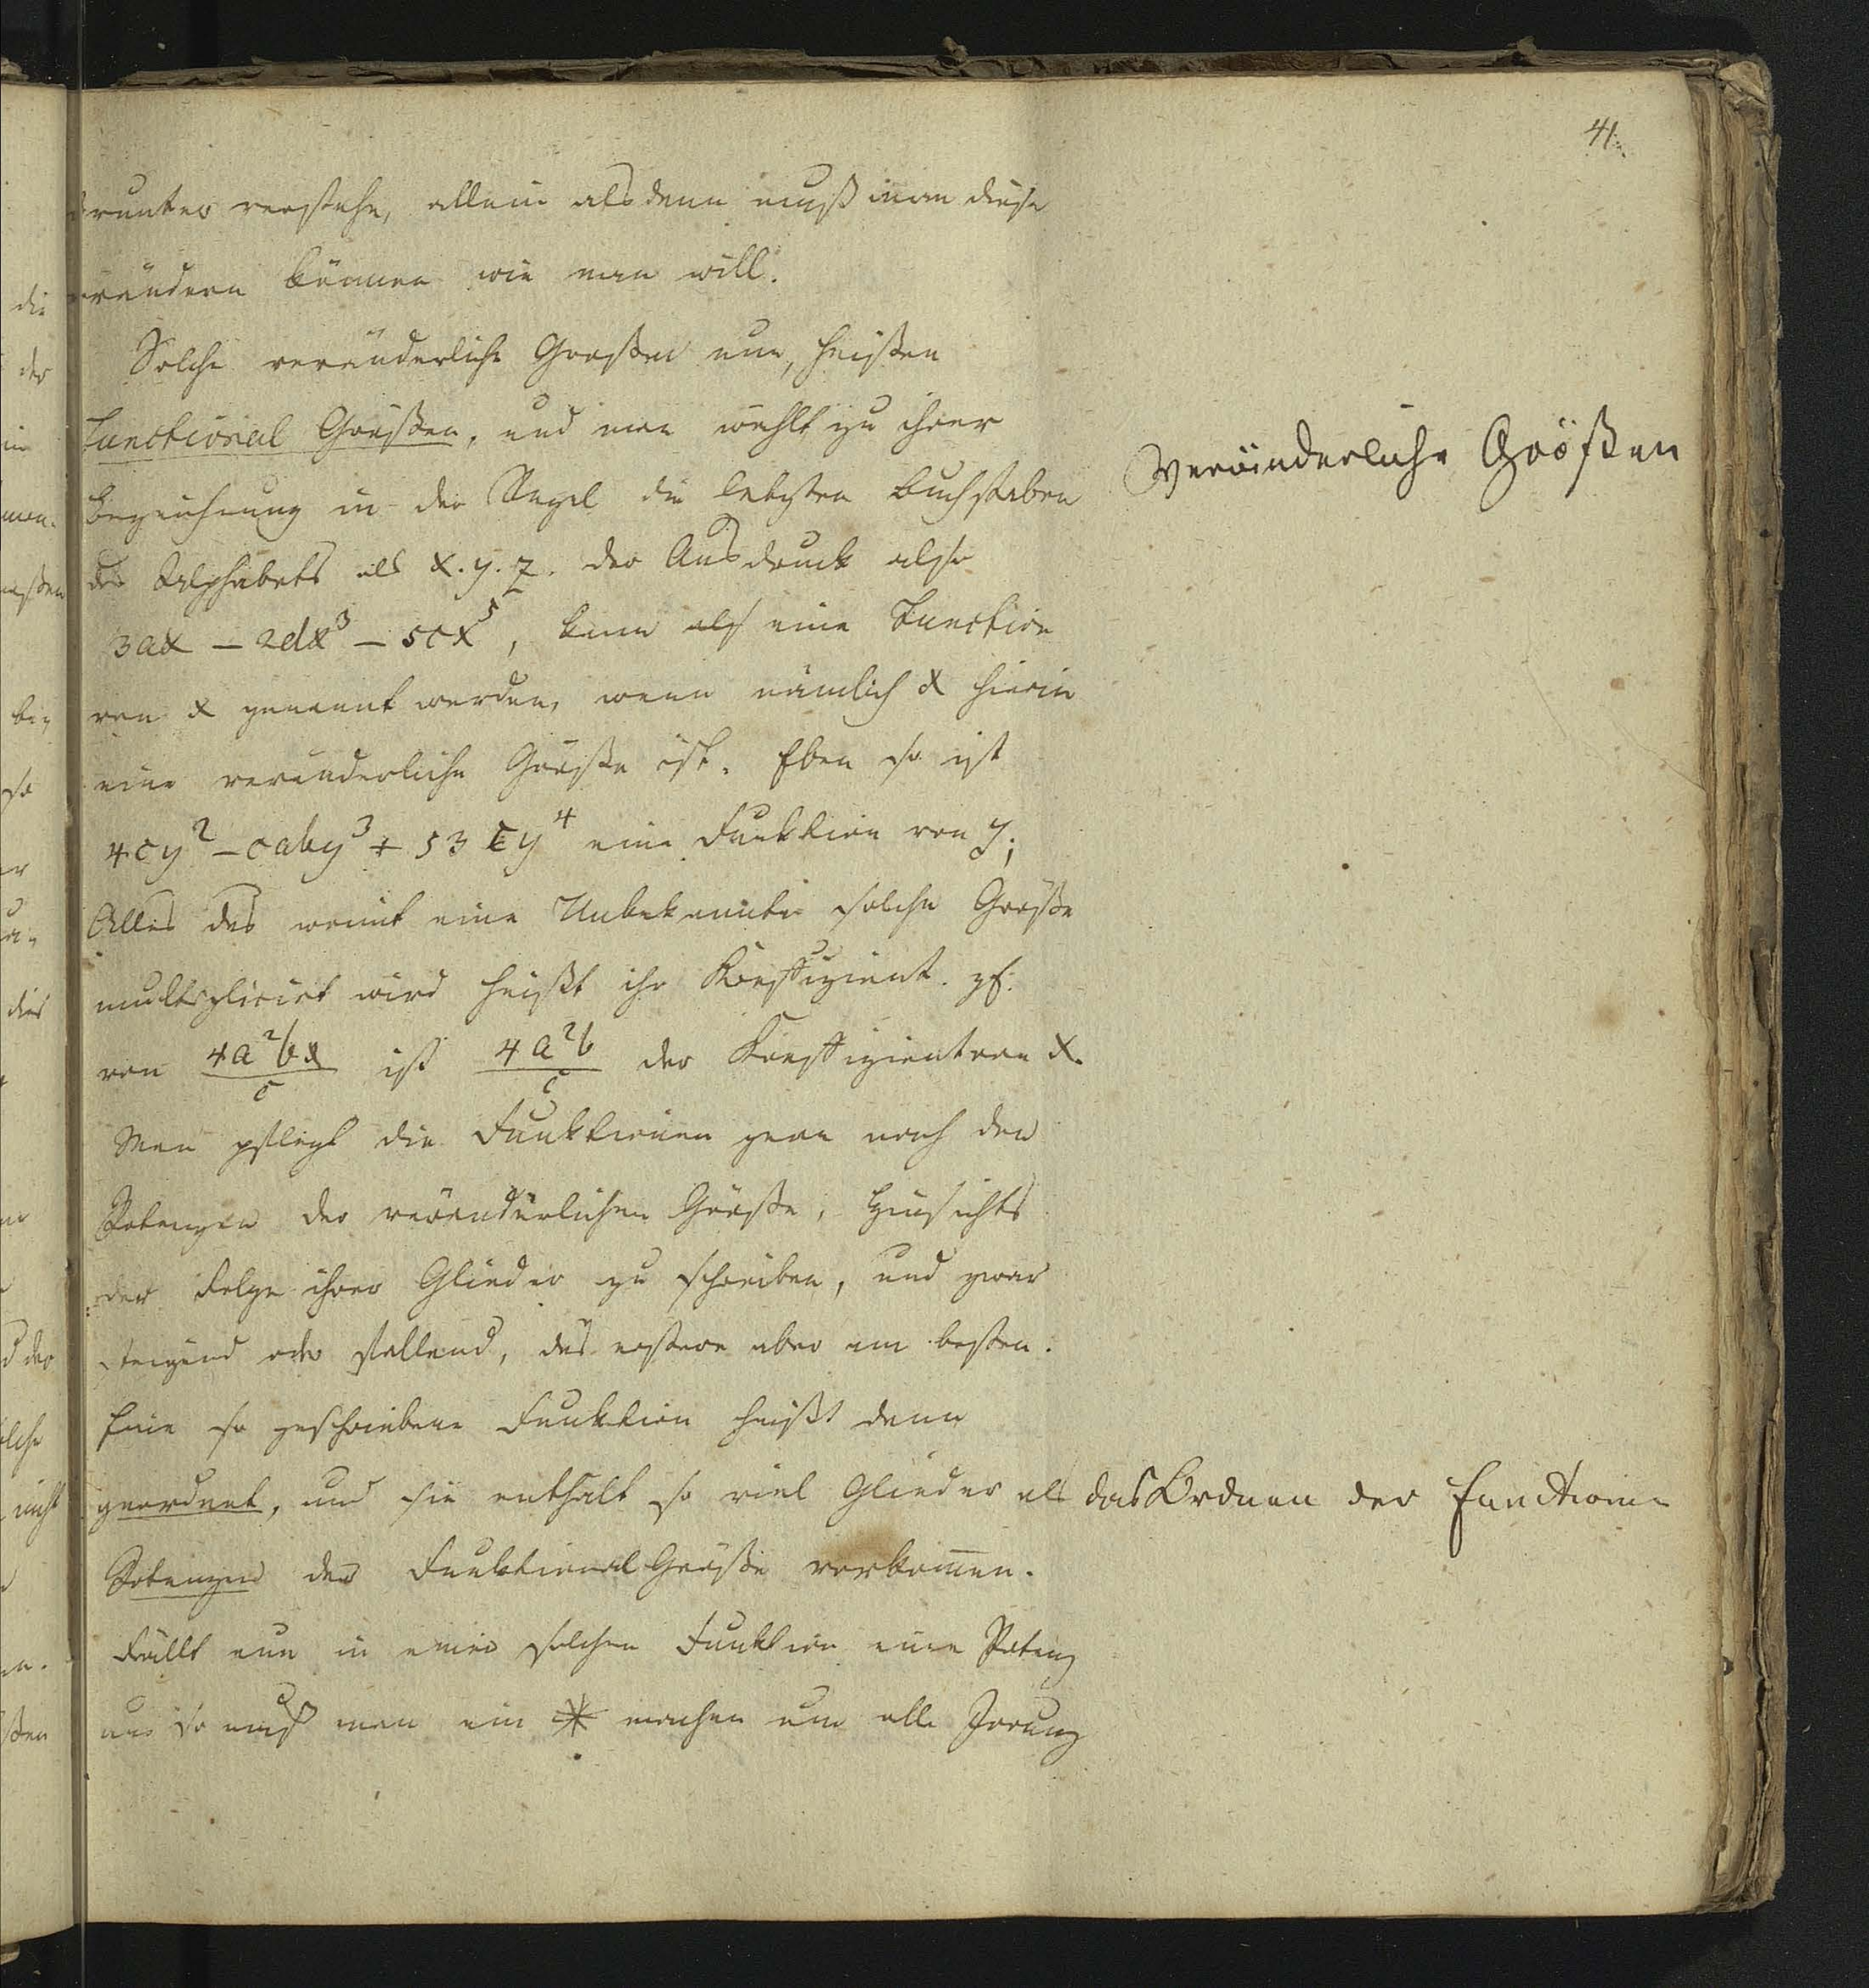 41.
drunter verstehe, allein alsdenn muß man diese
verändern können wie man will.
Solche veränderliche Großen nun, heißen
Functional Größen, und man wählt zu ihrer
Bezeichnung in der Regel die letzten Buchstaben
des Alphabets als x. y. z. der Ausdruck also
3ax – 2dx³ – 5cx⁵, kann als eine Function
von x genannt werden, wenn nämlich x hierin
eine veränderliche Größe ist. Eben so ist
4cy² – caby³ + 53cy⁴ eine Funktion von y;
Alles das womit eine Unbekannte solche Größe
multiplicirt wird heißt ihr Koeffizient. z.
von 4a²bx/c ist 4a²b/c der Koeffizient von x.
Man pflegt die Funktionen gern nach den
Potenzen der veränderlichen Größe, Hinsichts
der Folge ihrer Glieder zu schreiben, und zwar
steigend oder fallend, das erstere aber am besten.
Eine so geschriebene Funktion heißt dann
geordnet, und sie enthält so viel Glieder als
Potenzen der Funktional Größe vorkom̄en.
Fällt nun in einer solchen Funktion eine Potenz
aus so muß man ein * machen um alle Irrung
Veränderliche Größen
das Ordnen der Functionen
die
der
men.
bey
so
dies
d der
nicht